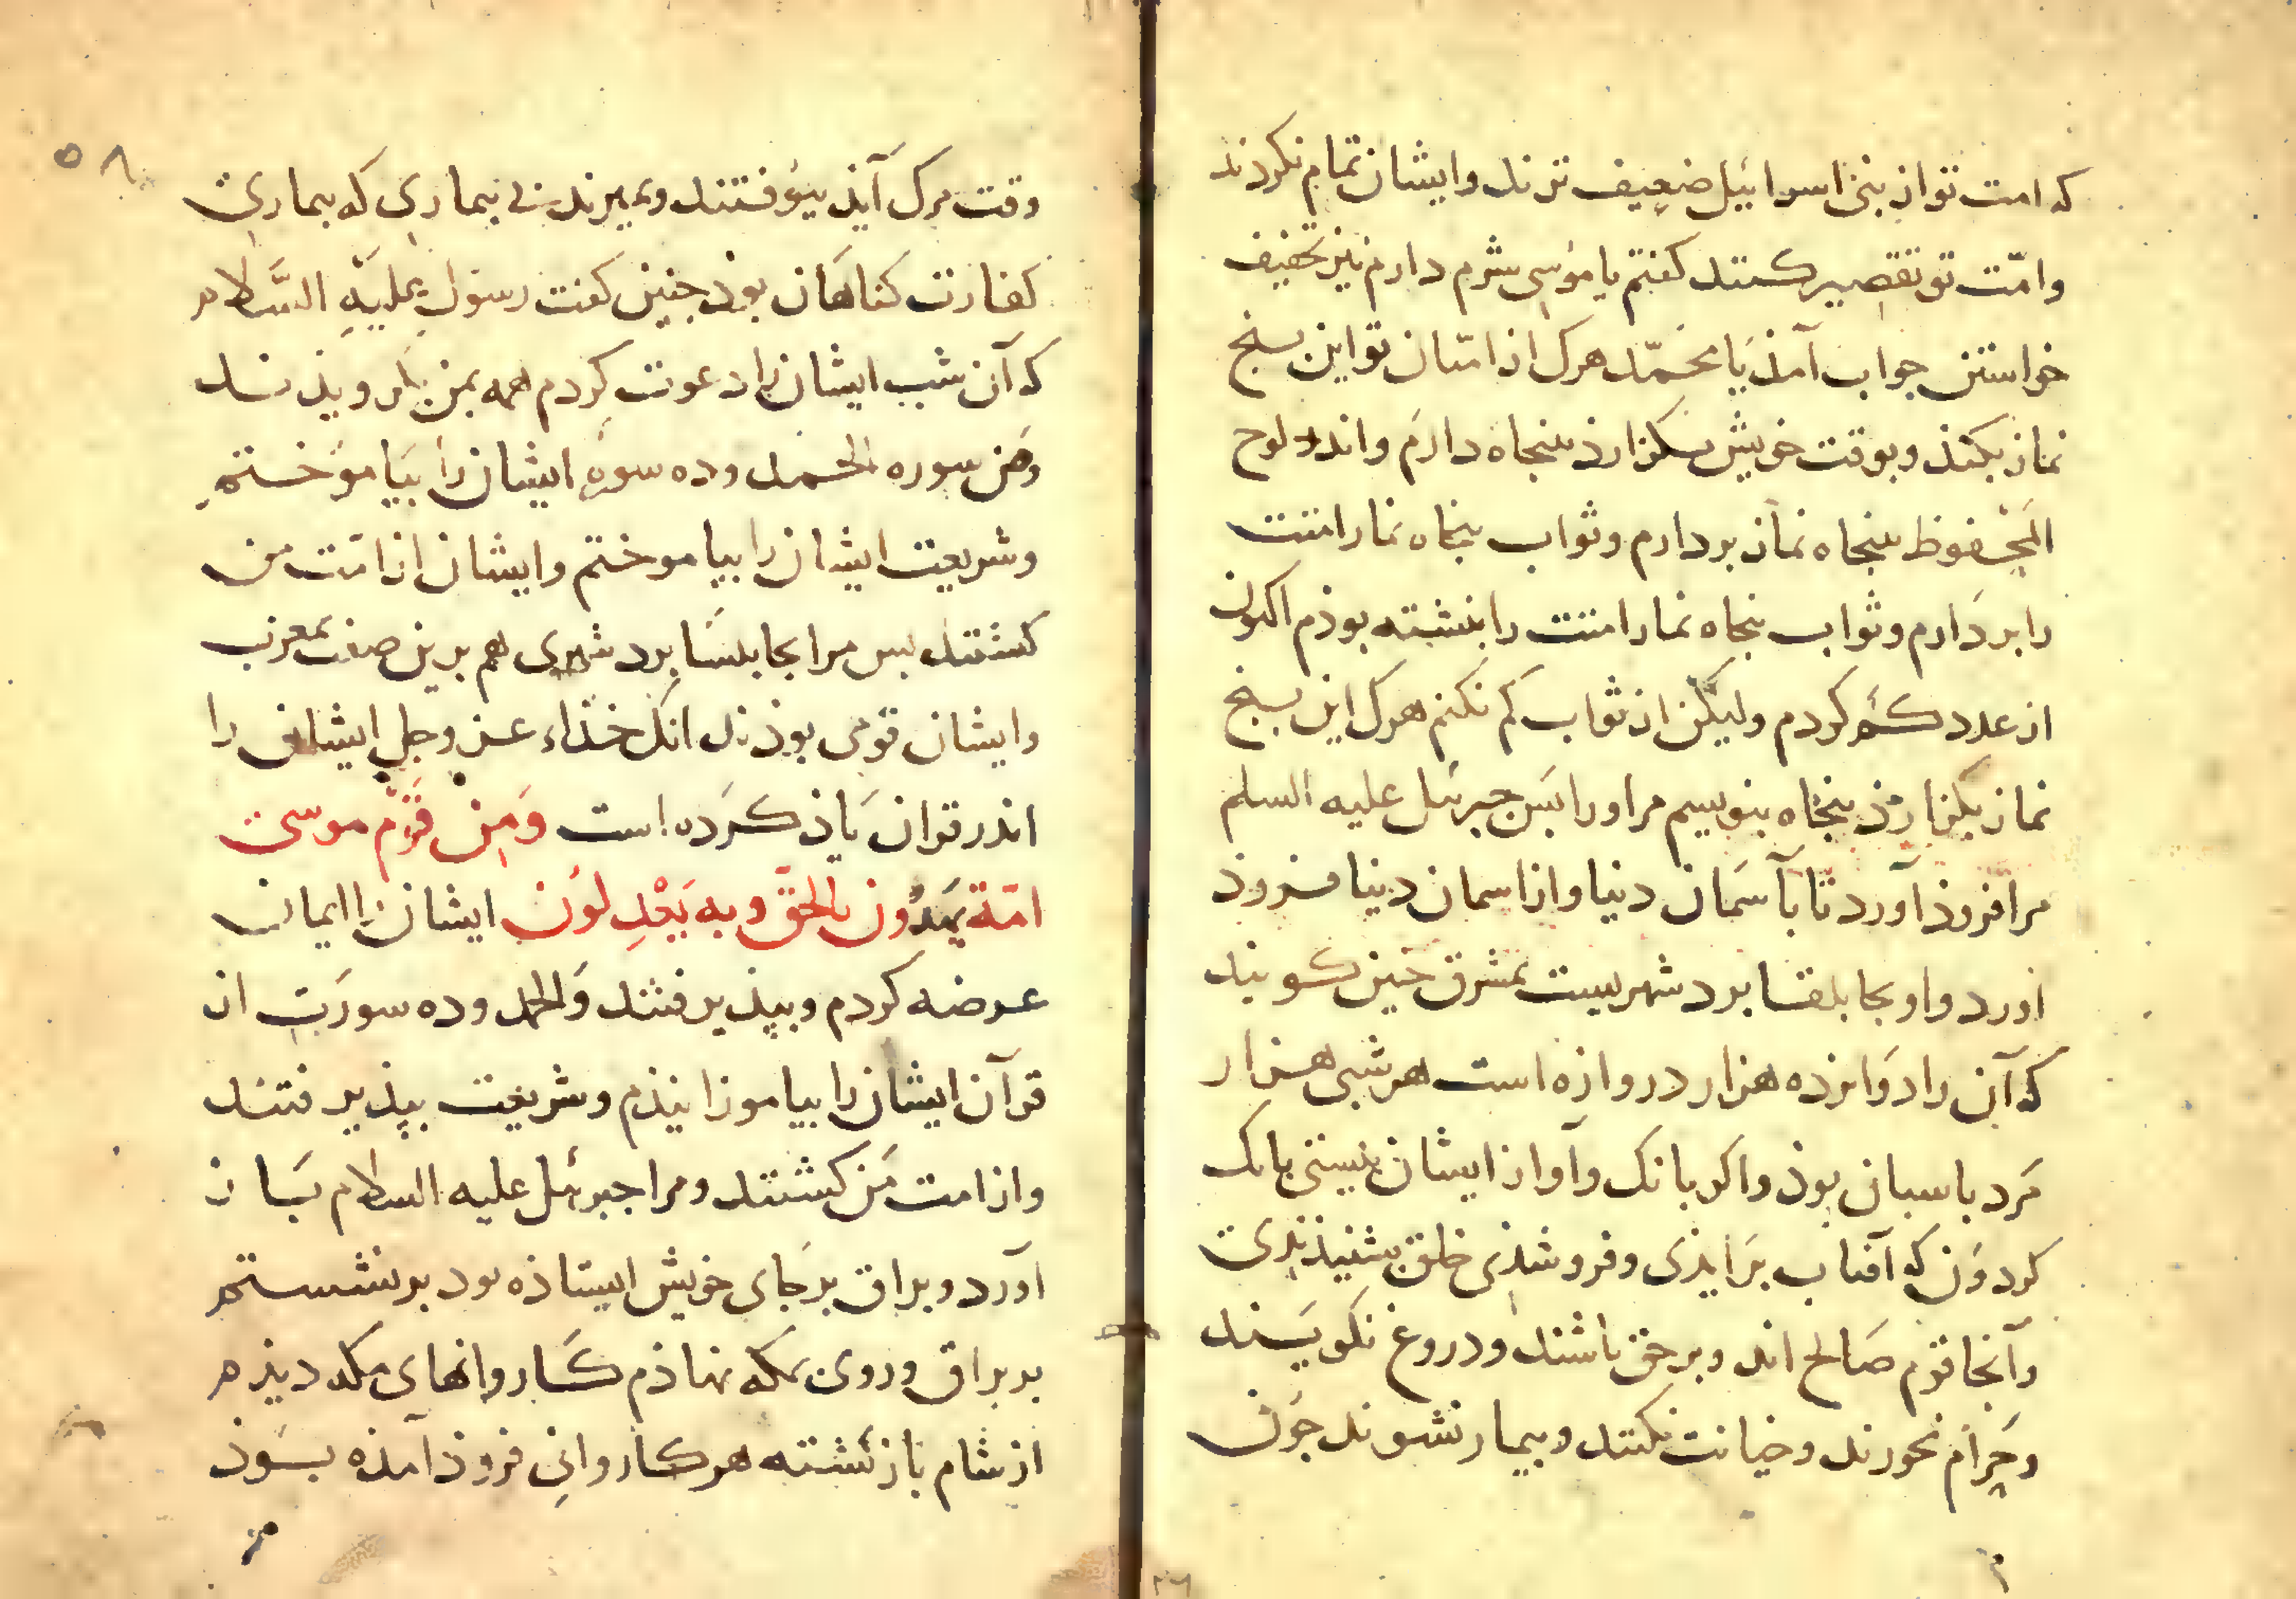 که امت تو از بنی اسرائیل ضعیف ترند وایشان تمام نکردند
وامّت تو تقصیر کنند کفتم یا موسی شرم دارم نیز تخفیف
خواستن جواب آمذ یا محمّد هرک از امتان تو این پنج
نماز بکند و بوقت خویش بکزارذ پنجاه دارم واندر لوح
المحفوظ پنجاه نماز بردارم وثواب پنجاه نماز امتت
را بردارم وثواب پنجاه نماز امتت را بنبشته بوذم اکنون
از عدد کم کردم ولیکن از ثواب کم نکنم هرک این پنج
نماز بکزارذ پنجاه بنویسم مر اورا پس جبرئیل علیه السلم
مرا فروذ آورد تا بآسمان دنیا واز اسمان دنیا فروذ
اورد واو بجابلقا برد شهریست بمشرق چنین کویند
که آن را دوازده هزار دروازه است هر شبی هزار
مرد پاسبان بوذ واکر بانک وآواز ایشان نیستی بانک
کردون که آفتاب برایذی وفرو شذی خلق بشنیذندی
وآنجا قوم صالح اند وبر حق باشند ودروغ نکویند
وحرام نخورند وخیانت نکنند وبیمار نشوند چون
۵۸
وقت مرک آیذ بیوفتند وبمیرند بی بیماری که بیماری
کفارت کناهان بوذ چنین کفت رسول علیه السَّلام
که آن شب ایشان را دعوت کردم همه بمن بکرویذند
ومن سوره الحمد وده سوره ایشان را بیاموختم
وشریعت ایشان را بیاموختم وایشان از امّت من
کشتند پس مرا بجابلسا برد شهری هم برین صفت بمغرب
وایشان قومی بوذند انک خذاء عز وجل ایشان را
اندر قران یاذ کرده است وَمِنْ قَوْم موسی
امّة یهدُون بالحقّ وبه یَعْدِلون ایشان را ایمان
عرضه کردم وبپذیرفتند والحمد وده سورت از
قرآن ایشان را بیاموزانیذم وشریعت بپذیرفتند
واز امت من کشتند ومرا جبرئیل علیه السلام باز
آورد وبراق بر جای خویش ایستاذه بود برنشستم
بر براق وروی بمکه نهاذم کاروانهای مکه دیذم
از شام باز کشته هر کاروانی فروذ آمذه بوذ